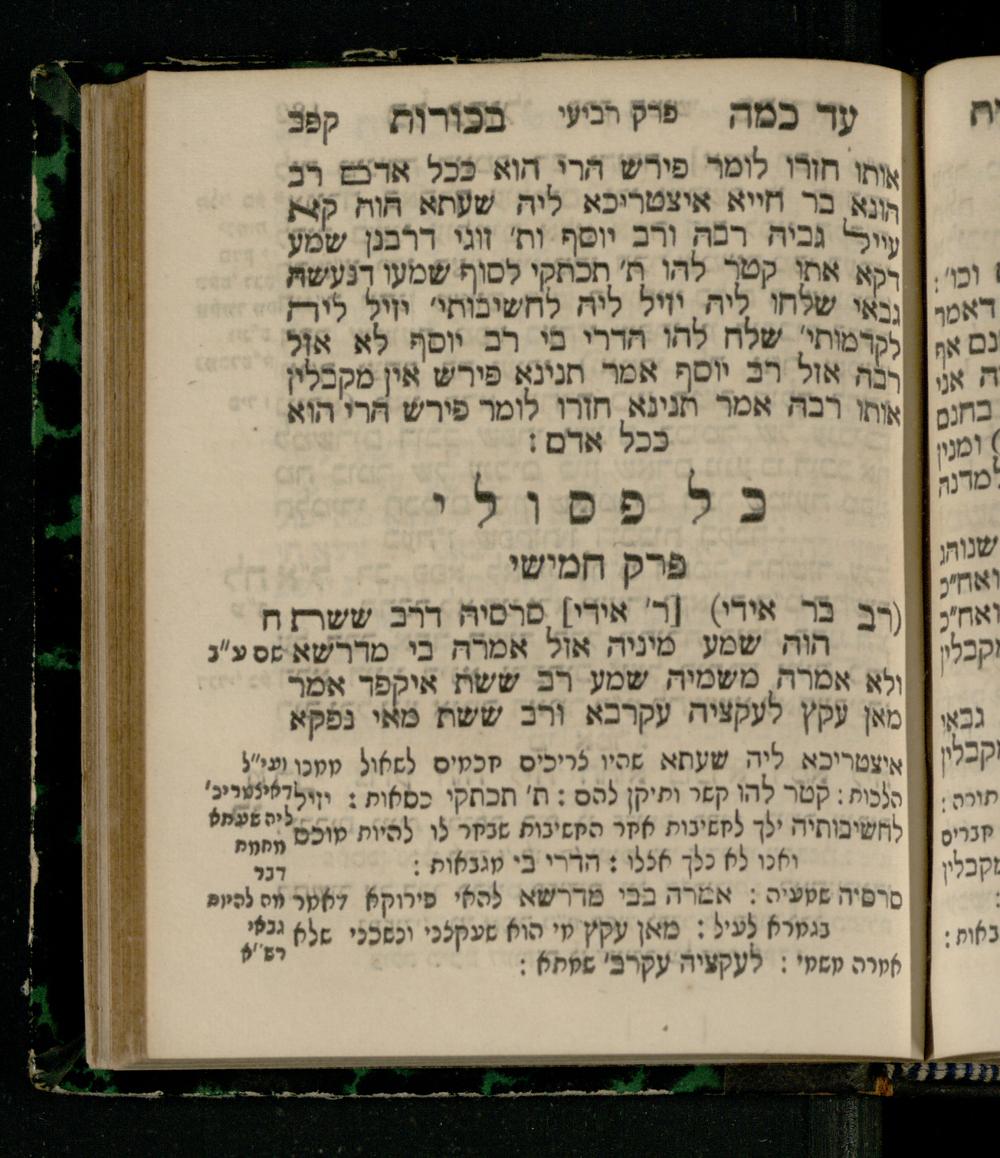 עד כמה פרק רביעי בכורות קפב
אותו חזרו לומר פירש הרי הוא ככל אדם רב
הונא בר חייא איצטריכא ליה שעתא הוה קא
עייל גביה רבה ורב יוסף ות' זוגי דרבנן שמע
דקא אתו קטר להו ת' תכתקי לסוף שמעו דנעשה
גבאי שלחו ליה יזיל ליה לחשיבותי' יזיל ליה
לקדמותי' שלח להו הדרי בי רב יוסף לא אזל
רבה אזל רב יוסף אמר תנינא פירש אין מקבלין
אותו רבה אמר תנינא חזרו לומר פירש הרי הוא
ככל אדם :
כל פסולי
פרק חמישי
(רב בר אידי) [ר' אידי] סרסיה דרב ששת ח
הוה שמע מיניה אזל אמרה בי מדרשא שם ע"ב
ולא אמרה משמיה שמע רב ששת איקפד אמר
מאן עקץ לעקציה עקרבא ורב ששת מאי נפקא
איצטריכא ליה שעתא שהיו צריכים חכמים לשאול ממנו
הלכות : קטר להו קשר ותיקן להם : ת' תכתקי כסאות : יזיל
לחשיבותיה ילך לחשיבות אחר החשיבות שבחר לו להיות מוכס
ואנו לא נלך אצלו : הדרי בי מגבאות :
סרסיה שמעיה : אמרה בבי מדרשא להאי פירוקא דאמר
בגמרא לעיל : מאן עקץ מי הוא שעקצני ונשכני שלא
אמרה משמי : לעקציה עקרב' שמתא :
ועי"ל
דאיצטריכ'
ליה שעתא
מחמת
דבר
מה להיות
גבאי
רש"א